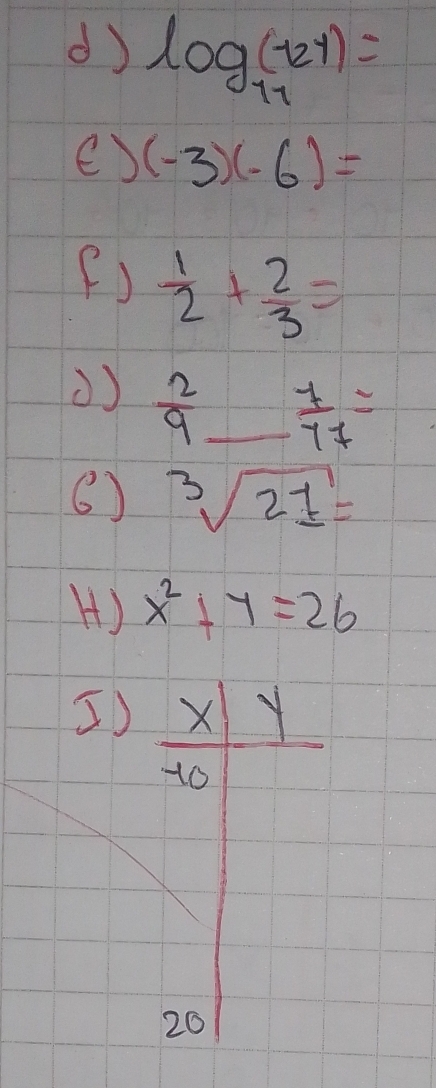 d) log₁₁(121)=
e)(-3)(-6)=
f) 1/2 + 2/3 =
J) 2/9 __ 7/17 =
G) ³√27=
H) x²+y=26
I) X | Y
10
20